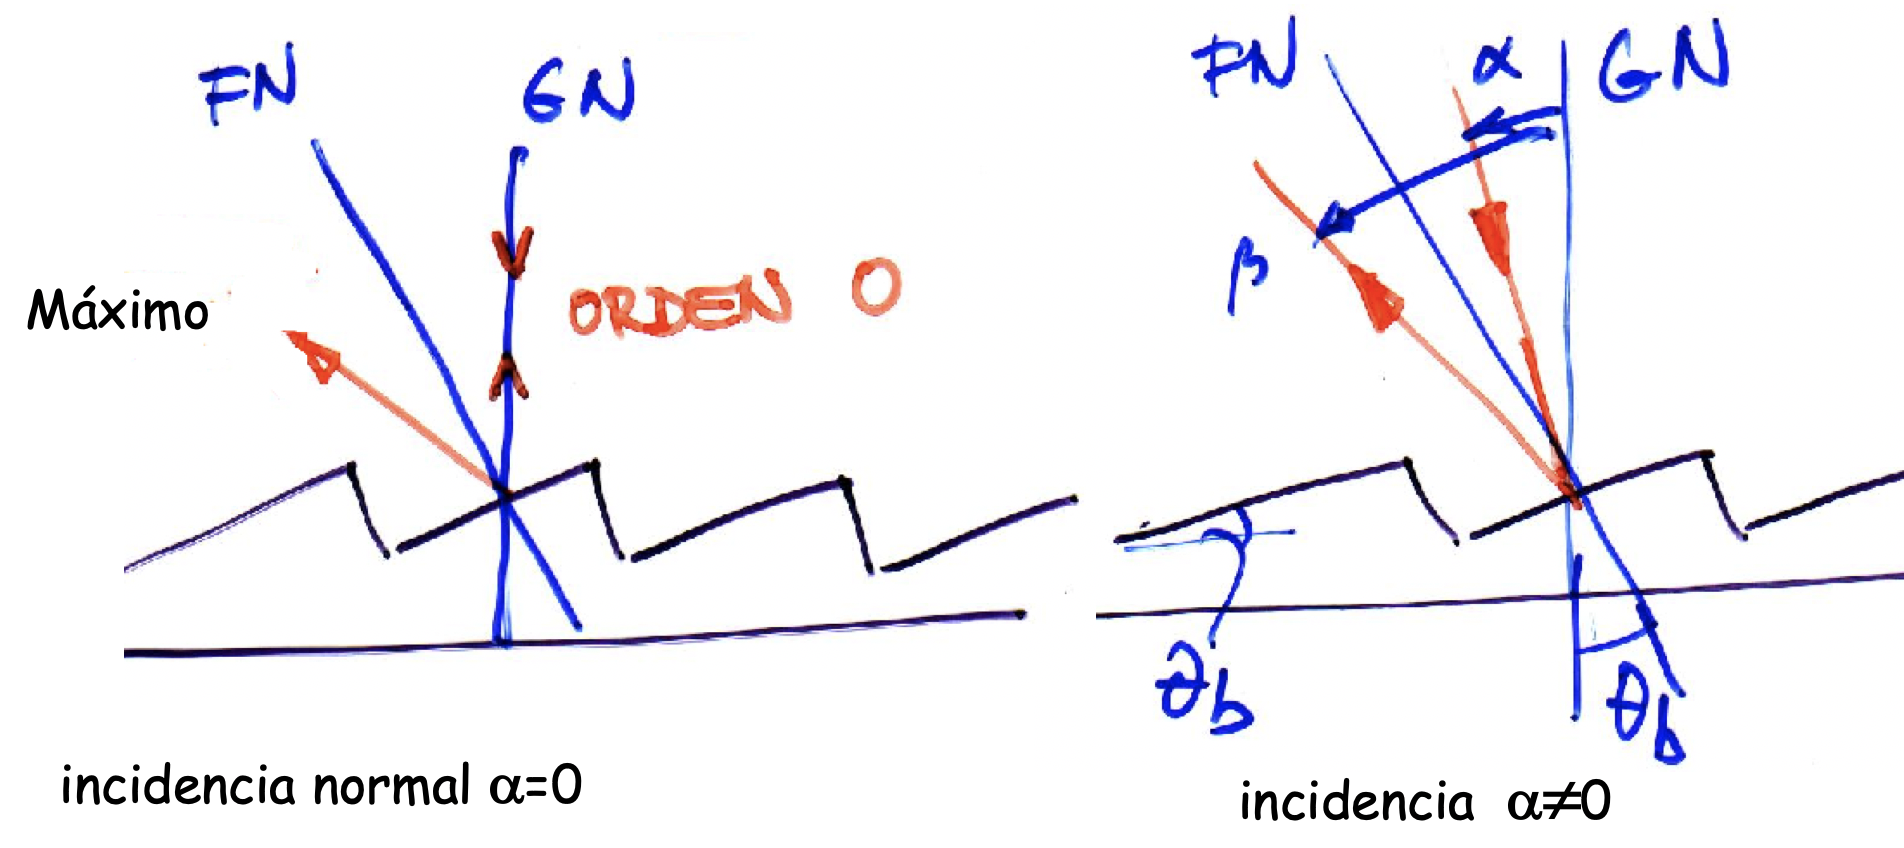 FN GN
Máximo
ORDEN 0
incidencia normal α=0
FN α GN
β
θb
θb
incidencia α≠0